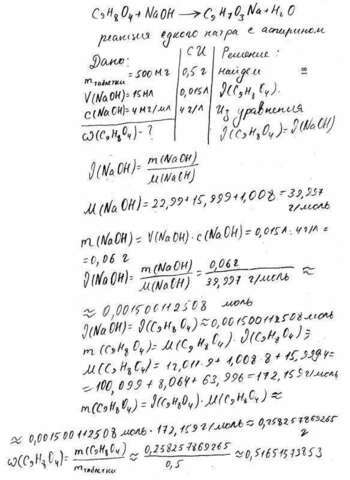 C₉H₈O₄ + NaOH → C₉H₇O₃Na + H₂O
реакция едкого натра с аспирином
Дано: СИ Решение:
m таблетки = 500 мг 0,5 г найдем
V(NaOH) = 15 мл 0,015 л ν(C₉H₈O₄).
c(NaOH) = 4 мг/мл 4 г/л Из уравнения
ω(C₉H₈O₄) - ? ν(C₉H₈O₄) = ν(NaOH)
ν(NaOH) = m(NaOH) / M(NaOH)
M(NaOH) = 22,99 + 15,999 + 1,008 = 39,997 г/моль
m(NaOH) = V(NaOH) · c(NaOH) = 0,015 л · 4 г/л =
= 0,06 г
ν(NaOH) = m(NaOH) / M(NaOH) = 0,06 г / 39,997 г/моль ≈
≈ 0,001500112508 моль
ν(NaOH) = ν(C₉H₈O₄) ≈ 0,001500112508 моль
m(C₉H₈O₄) = M(C₉H₈O₄) · ν(C₉H₈O₄);
M(C₉H₈O₄) = 12,011·9 + 1,008·8 + 15,999·4 =
= 100,099 + 8,064 + 63,996 = 172,159 г/моль
m(C₉H₈O₄) = ν(C₉H₈O₄) · M(C₉H₈O₄) ≈
≈ 0,001500112508 моль · 172,159 г/моль ≈ 0,258257869265 г
ω(C₉H₈O₄) = m(C₉H₈O₄) / m таблетки ≈ 0,258257869265 / 0,5 ≈ 0,51651573853